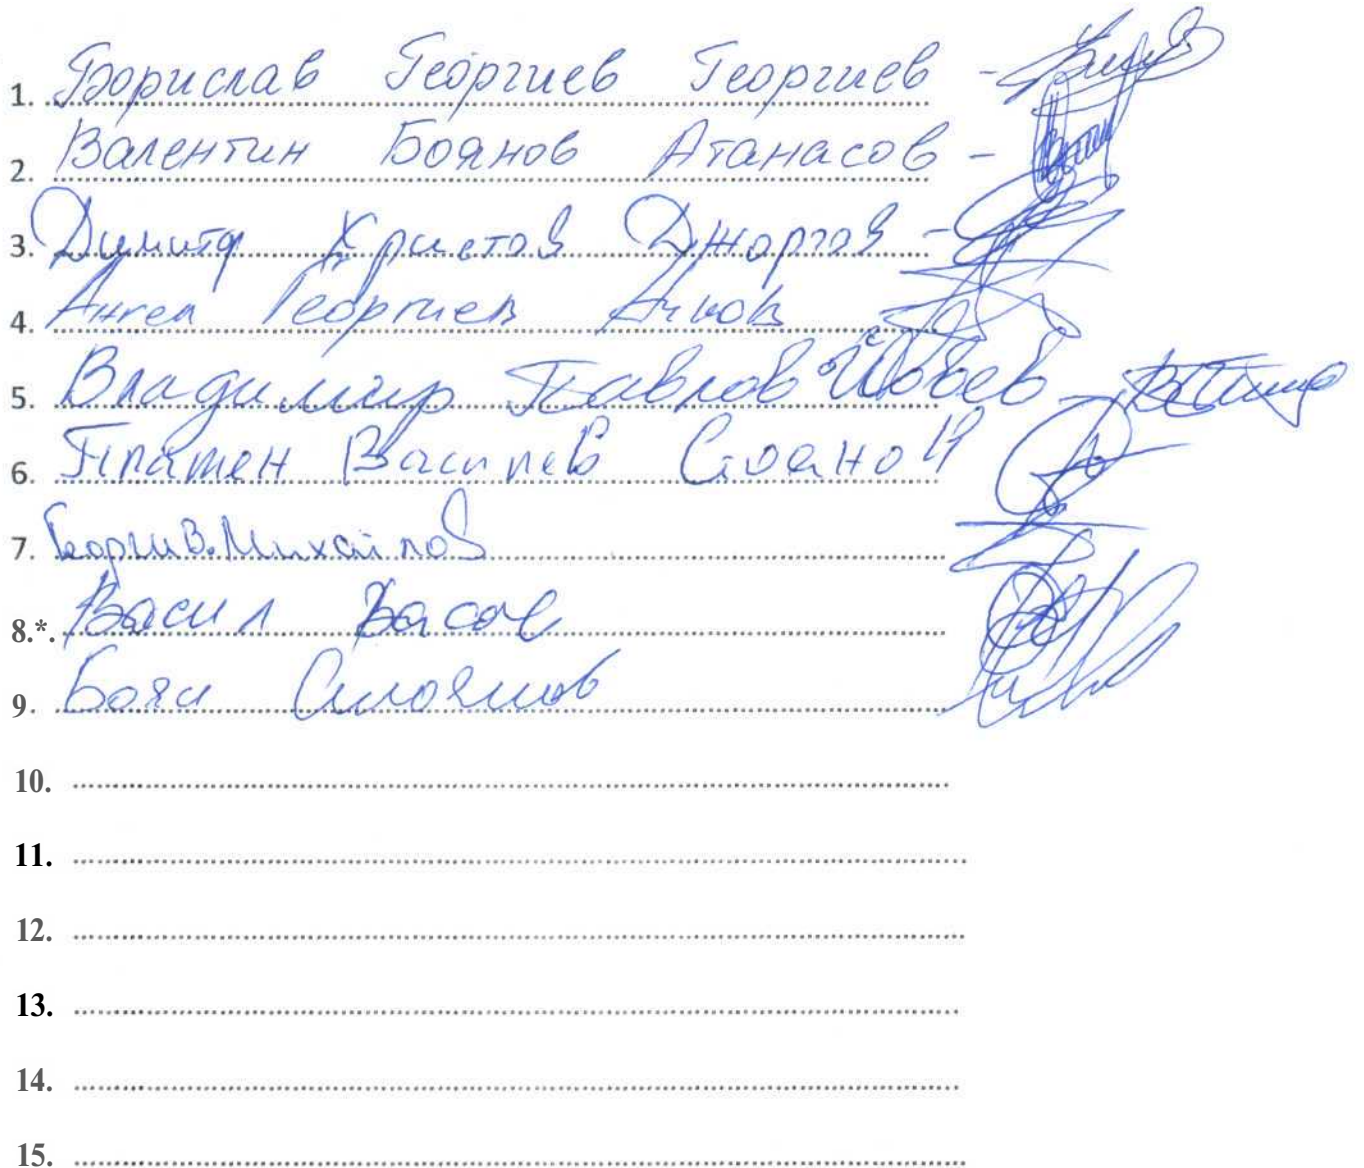 1. Борислав Георгиев Георгиев -
2. Валентин Боянов Атанасов -
3. Димитър Христов Джоргов -
4. Ангел Георгиев
5. Владимир Павлов -
6. Пламен Василев
7. Георги В. Михайлов
8.*. Васил Васов
9. Боян Стоянов
10.
11.
12.
13.
14.
15.